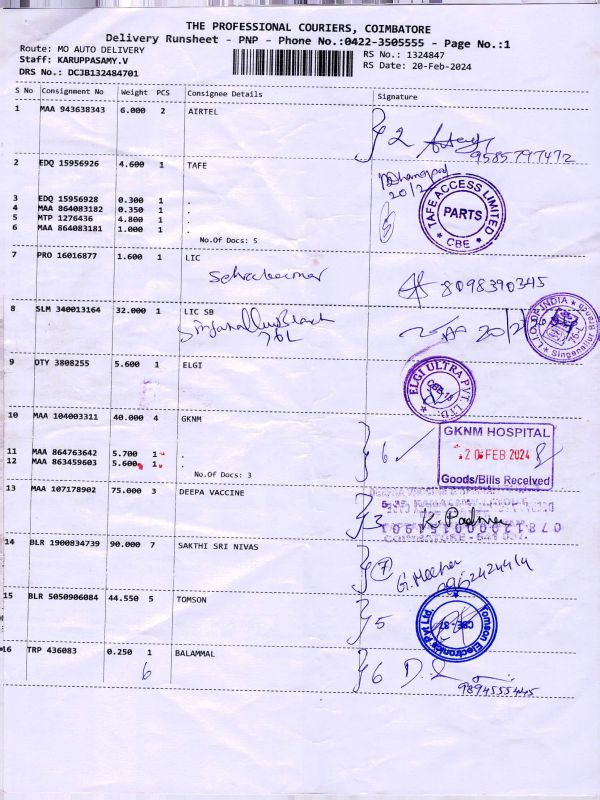 THE PROFESSIONAL COURIERS, COIMBATORE
Delivery Runsheet - PNP - Phone No.:0422-3505555 - Page No.:1
Route: MO AUTO DELIVERY
RS No.: 1324847
Staff: KARUPPASAMY.V
RS Date: 20-Feb-2024
DRS No.: DCJB132484701
S No Consignment No Weight PCS Consignee Details Signature
1 MAA 943638343 6.000 2 AIRTEL
2
9585797472
2 EDQ 15956926 4.600 1 TAFE
20/2
TAFE ACCESS LIMITED
PARTS
CBE
3 EDQ 15956928 0.300 1 .
4 MAA 864083182 0.350 1 .
5 MTP 1276436 4.800 1 .
6 MAA 864083181 1.000 1 .
No.Of Docs: 5
5
7 PRO 16016877 1.600 1 LIC
8098390345
8 SLM 340013164 32.000 1 LIC SB
76L
20/2
L.I.C. OF INDIA
Singanallur
76-L
9 OTY 3808255 5.600 1 ELGI
ELGI ULTRA PVT. LTD.
10 MAA 104003311 40.000 4 GKNM
GKNM HOSPITAL
20 FEB 2024
Goods/Bills Received
6
11 MAA 864763642 5.700 1 .
12 MAA 863459603 5.600 1 .
No.Of Docs: 3
13 MAA 107178902 75.000 3 DEEPA VACCINE
3 K. Padma
14 BLR 1900834739 90.000 7 SAKTHI SRI NIVAS
7
15 BLR 5050906084 44.550 5 TOMSON
5
Tomson Electronics Pvt Ltd.
16 TRP 436083 0.250 1 BALAMMAL
6
6